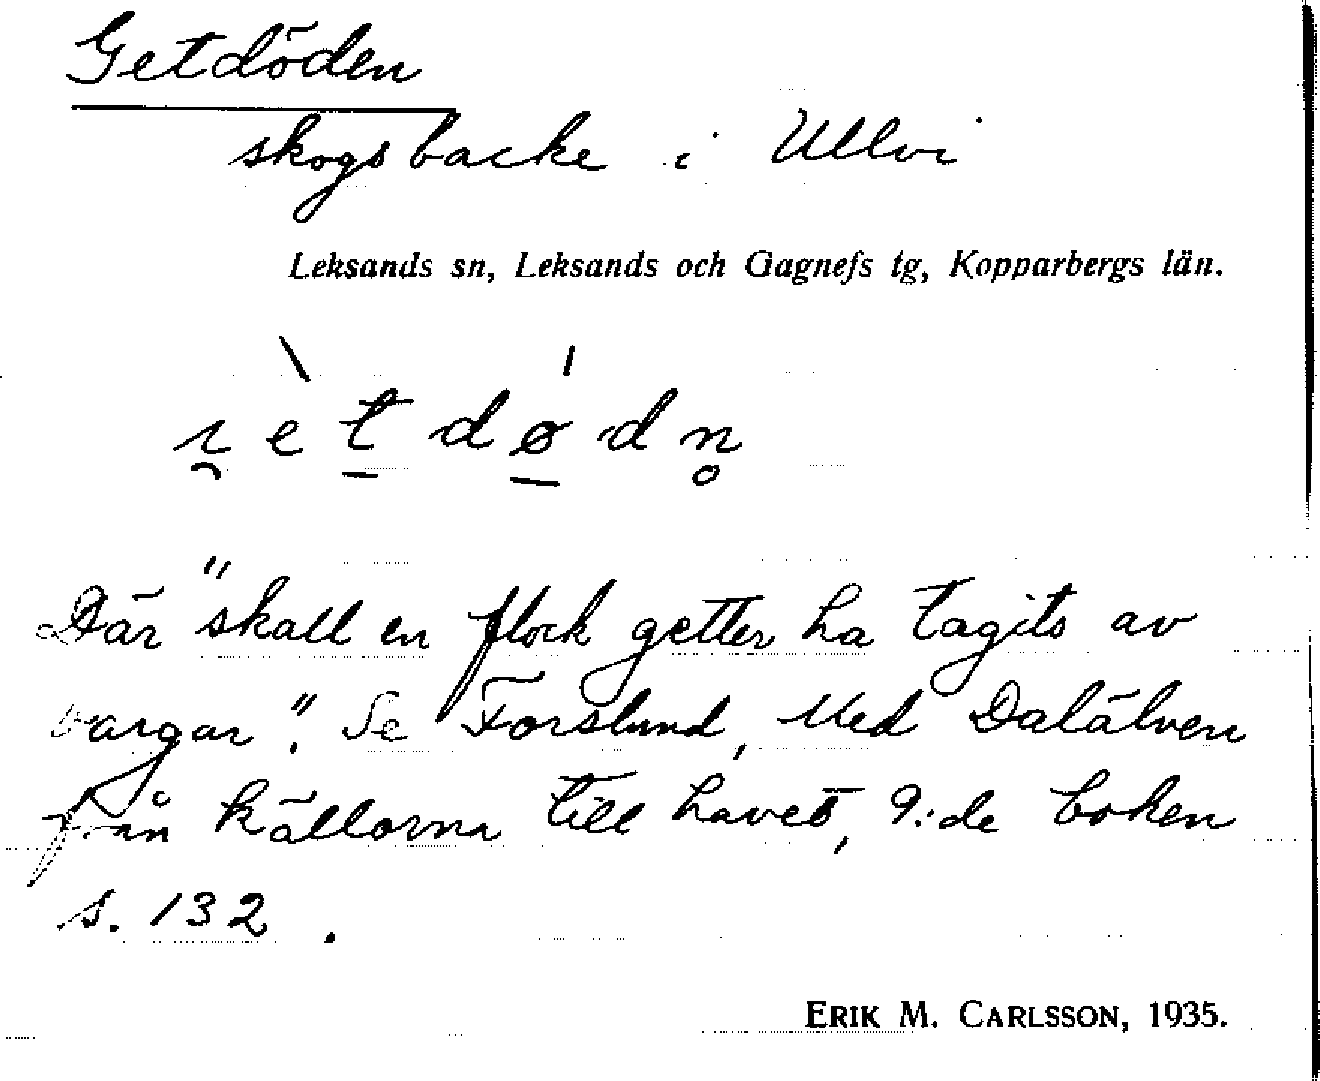 Getdöden
skogsbacke i Ullvi
Leksands sn, Leksands och Gagnefs tg, Kopparbergs län.
ı̯èt̠dǿ̠dn̥
Där "skall en flock getter ha tagits av
vargar". Se Forslund, Med Dalälven
från källorna till havet, 9:de boken
s. 132.
ERIK M. CARLSSON, 1935.